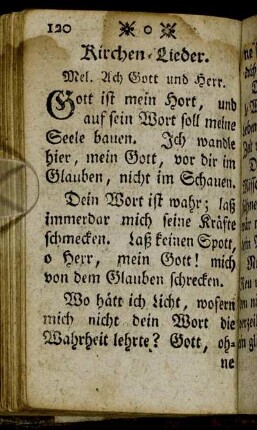 120
Kirchen-Lieder.
Mel. Ach Gott und Herr.
Gott ist mein Hort, und
auf sein Wort soll meine
Seele bauen. Ich wandle
hier, mein Gott, vor dir im
Glauben, nicht im Schauen.
Dein Wort ist wahr; laß
immerdar mich seine Kräfte
schmecken. Laß keinen Spott,
o Herr, mein Gott! mich
von dem Glauben schrecken.
Wo hätt ich Licht, wofern
mich nicht dein Wort die
Wahrheit lehrte? Gott, oh-
ne